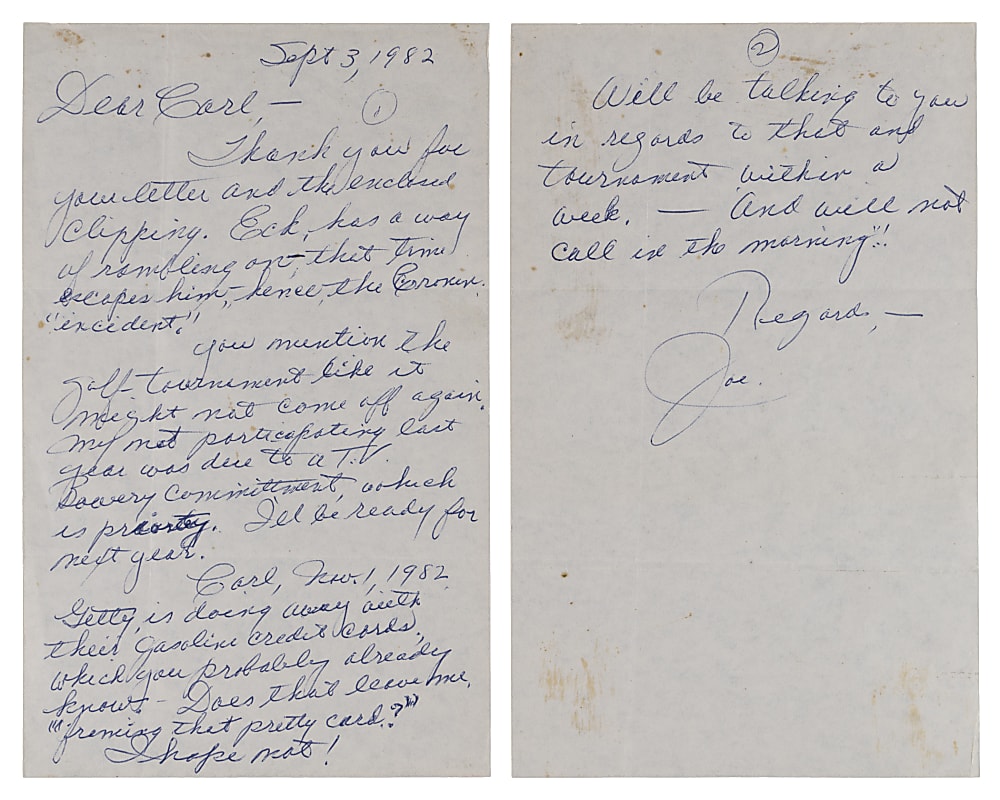 Sept 3, 1982
Dear Carl, —
1
Thank you for
your letter and the enclosed
clipping. Eck, has a way
of rambling on, that time
escapes him, hence, the Cronin
"incident."
You mention the
golf-tournament like it
might not come off again.
My not participating last
year was due to a T.V.
Bowery Committment, which
is priority. I'll be ready for
next year.
Carl, Nov. 1, 1982
Getty, is doing away with
their gasoline credit cards,
which you probably already
know. - Does that leave me,
"framing that pretty card.?"
I hope not!
2
Will be talking to you
in regards to that and
tournament within a
week. — And will not
call in the morning"!!
Regards, —
Joe.